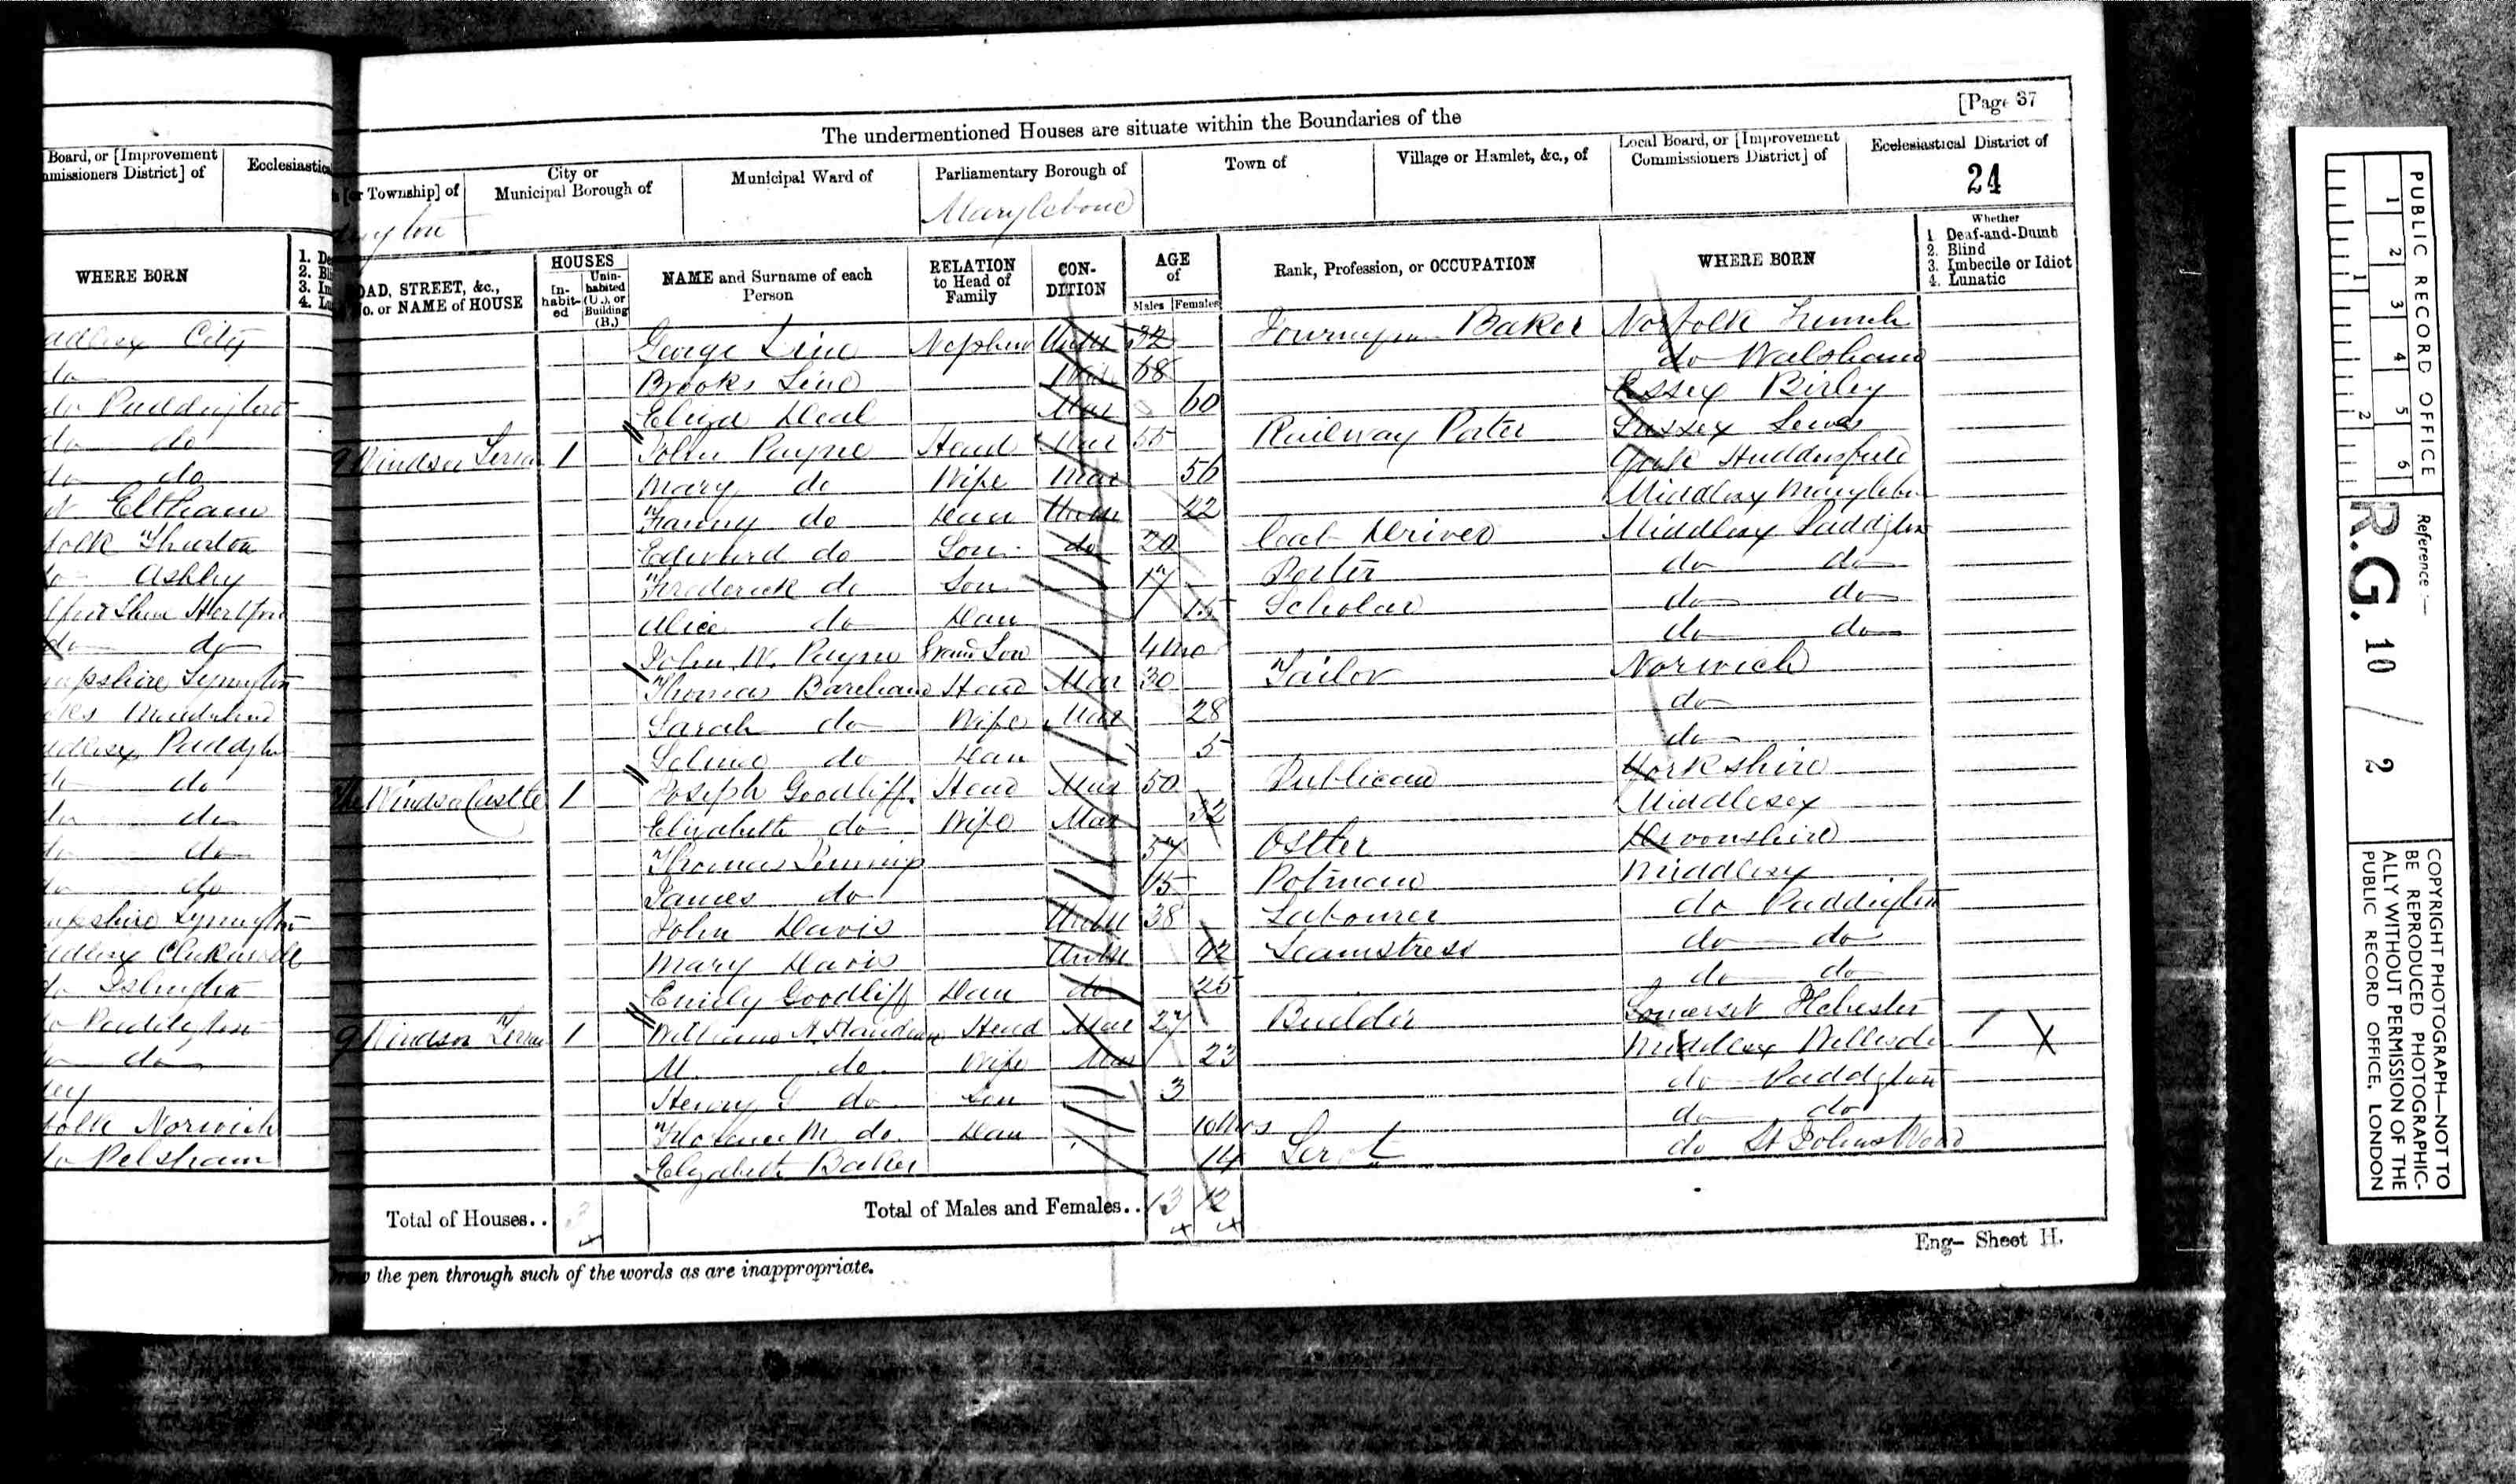 Board, or [Improvement
Commissioners District] of
Ecclesiastical
WHERE BORN
City
do
do Paddington
do do
do do
Eltham
Thurlton
do Ashby
Hertford
do do
Lymington
Paddington
do do
do do
do do
do do
Lymington
Clerkenwell
do Islington
do Paddington
do do
Norwich
[Page 37
The undermentioned Houses are situate within the Boundaries of the
[or Township] of
City or
Municipal Borough of
Municipal Ward of
Parliamentary Borough of
Marylebone
Town of
Village or Hamlet, &c., of
Local Board, or [Improvement
Commissioners District] of
Ecclesiastical District of
24
ROAD, STREET, &c.,
No. or NAME of HOUSE
HOUSES
In-
habit-
ed
Unin-
habited
(U.), or
Building
(B.)
NAME and Surname of each
Person
RELATION
to Head of
Family
CON-
DITION
AGE
of
Males Females
Rank, Profession, or OCCUPATION
WHERE BORN
Whether
1. Deaf-and-Dumb
2. Blind
3. Imbecile or Idiot
4. Lunatic
George Line Nephew Unm 32 Baker Norfolk
Brooks Line 68 do Walsham
Eliza Deal Mar 60 Essex Birley
9 Windsor Terra 1 John Payne Head Mar 55 Railway Porter Sussex Lewes
Mary do Wife Mar 56 York Huddersfield
Fanny do Dau Unm 22 Middlesex Marylebone
Edward do Son do 20 Driver Middlesex Paddington
Frederick do Son 17 Porter do do
Alice do Dau 15 Scholar do do
John W. Payne Grand Son 4 mo do do
Thomas Bareham Head Mar 30 Tailor Norwich
Sarah do Wife Mar 28 do
do Dau 5 do
Windsor Castle 1 Joseph Goodliff Head Mar 50 Publican Yorkshire
Elizabeth do Wife Mar 32 Middlesex
Thomas 57 Ostler Devonshire
James do 15 Potman Middlesex
John Davis Unm 38 Labourer do Paddington
Mary Davis Unm 42 Seamstress do do
Emily Goodliff Dau do 25 do do
9 Windsor Terrace 1 William Head Mar 27 Builder Somerset Ilchester
M. do Wife Mar 23 Middlesex Willesden 1 X
Henry do Son 3 do Paddgton
Florence M. do Dau 10 mos do do
Elizabeth Baker 14 Servt do St Johns Wood
Total of Houses.. 3
Total of Males and Females.. 13 12
Eng- Sheet H.
the pen through such of the words as are inappropriate.
PUBLIC RECORD OFFICE
1 2 3 4 5 6
1 2
Reference :—
R.G. 10 / 2
COPYRIGHT PHOTOGRAPH—NOT TO
BE REPRODUCED PHOTOGRAPHIC-
ALLY WITHOUT PERMISSION OF THE
PUBLIC RECORD OFFICE, LONDON